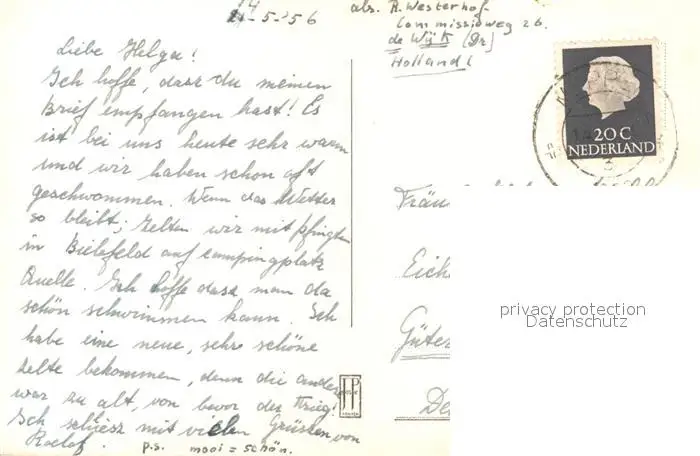 14-5-'56
Liebe Helga!
Ich hoffe, dasz du meinen
Brief empfangen hast! Es
ist bei uns heute sehr warm
und wir haben schon oft
geschwommen. Wenn das Wetter
so bleibt; Zelten wir mit pfingten
in Bielefeld auf campingplatz
Quelle. Ich hoffe dasz man da
schön schwimmen kann. Ich
habe eine neue, sehr schöne
zelte bekommen, denn die andere
war zu alt, von bevor der Krieg!
Ich schliesz mit vielen Grüszen von
Roelof.
p.s. mooi = schön.
abs. R. Westerhof
Commissieweg 26.
de Wijk (Dr)
Holland
20 C
NEDERLAND
3
JP
Fräu
Eich
Güter
De
privacy protection
Datenschutz